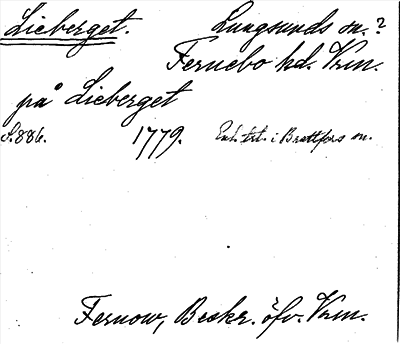 Lieberget. Lungsunds sn.?
Fernebo hd. Vrm.
på Lieberget
S. 886. 1779. Enl. trl. i Brattfors sn.
Fernow, Beskr. öfv. Vrm.